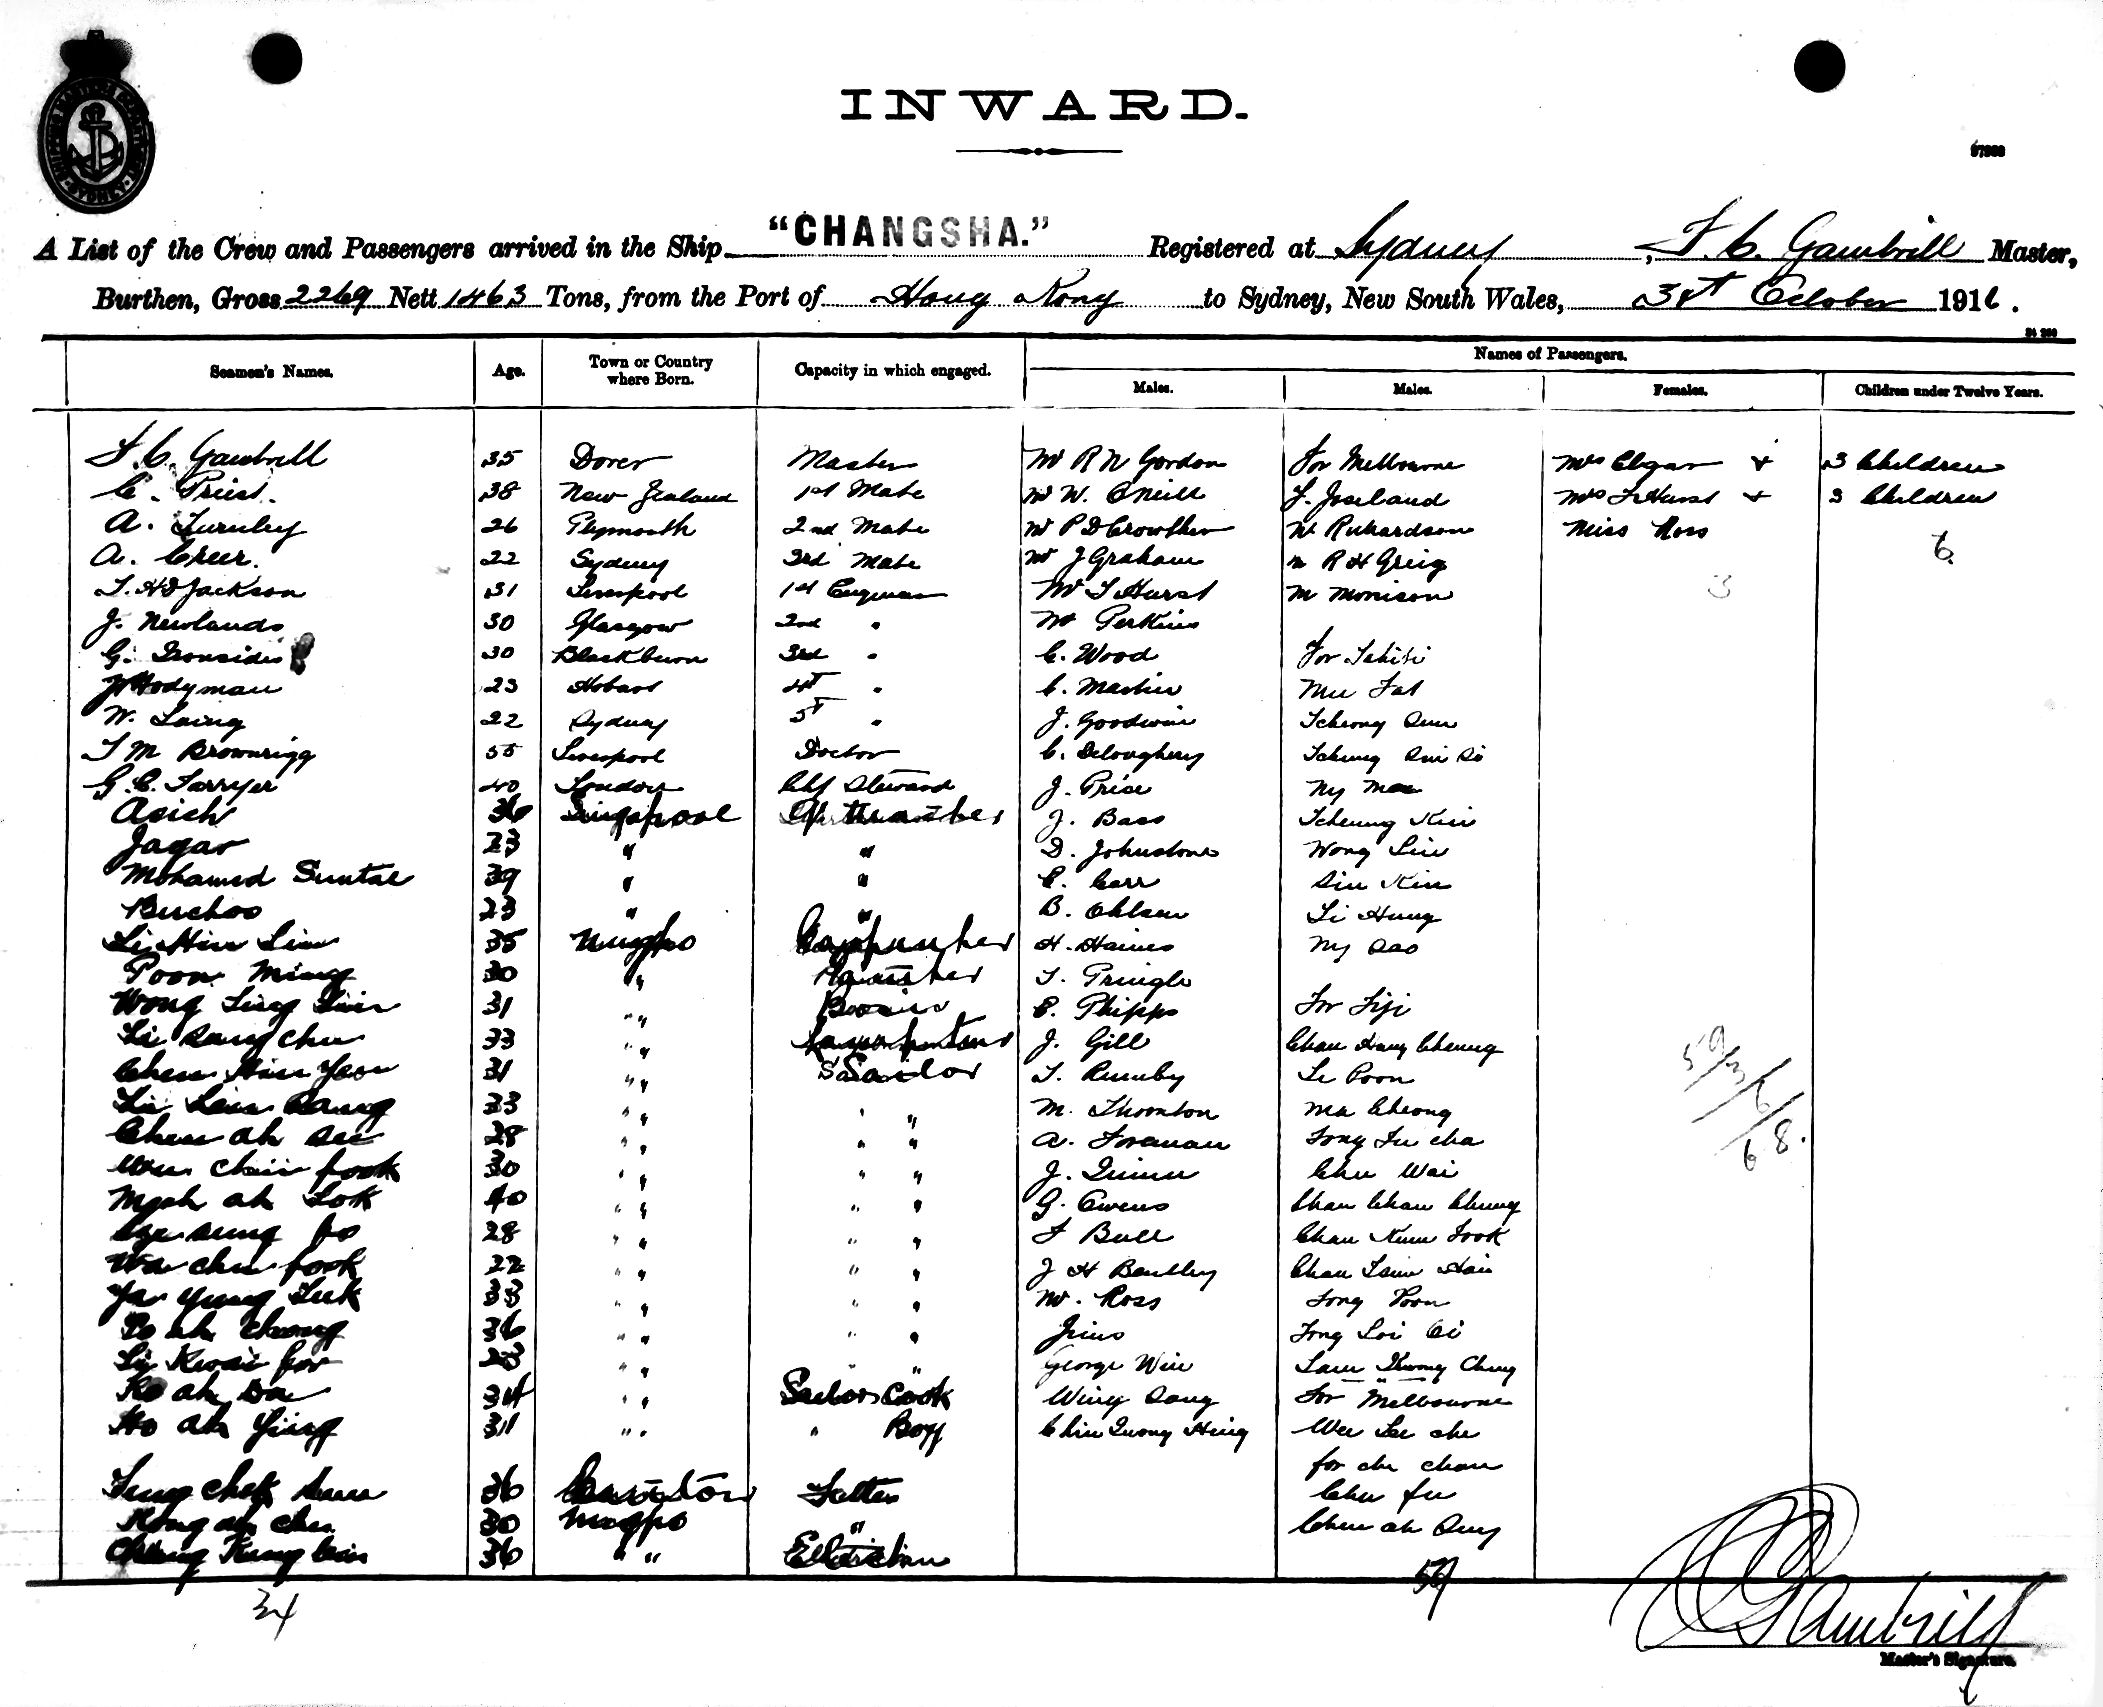 INWARD.
A List of the Crew and Passengers arrived in the Ship "CHANGSHA." Registered at Sydney, F. C. Gambrill Master,
Burthen, Gross 2269 Nett 1463 Tons, from the Port of Hong Kong to Sydney, New South Wales, October 1916.
Seamen's Names. Age. Town or Country where Born. Capacity in which engaged. Names of Passengers.
Males. Males. Females. Children under Twelve Years.
F. C. Gambrill 35 Dover Master Mr R N Gordon For Melbourne Mrs Elgar + 3 Children
C. Priest. 38 New Zealand 1st Mate Mr W. O'Neill F. Joseland Mrs T Hurst + 3 Children
A. Turnley 26 Plymouth 2nd Mate Mr P D Crowther W. Richardson Miss Ross
A. Creer. 22 Sydney 3rd Mate Mr J Graham R H Greig 6.
T. H D Jackson 31 Liverpool 1st Engineer Mr T Hurst M Morrison 3
J. Newlands 30 Glasgow 2nd " Mr Perkins
G. Ironsides 30 Blackburn 3rd " C. Wood For Tahiti
Hodyman 23 Hobart 4th " C. Martin Mu Fat
W. Laing 22 Sydney 5th " J. Goodwin Tcheong Sun
T M Brownrigg 55 Liverpool Doctor C. Deloughery Tcheung Sin Si
G. C. Farryer 40 London Chf Steward J. Price Ny Mea
Asich 36 Singapore Qr Master J. Bass Tcheung Kin
Jagar 23 " " D. Johnstone Wong Lin
Mohamed Suntal 39 " " C. Carr Sin Kin
Buchoo 23 " " B. Ohlsen Li Hung
Li Hin Lin 35 Ningpo Carpenter H. Haines Ny Sao
Poon Ming 30 " T. Pringle
Wong Ling 31 " " Bosun E. Phipps For Fiji
Li Sang Chu 33 " " J. Gill Chan Hang Cheung
Chen Hin Yeon 31 " " Sailor T. Rumby Le Poon 59/3/6/68.
Li Lain 33 " " " M. Thornton Ma Cheong
Chen ah See 28 " " " " A. Foreman Fong Fu cha
Chin fook 30 " " " " J. Quinn Chu Wai
ah Lok 40 " " " " G. Owens Chan Chan Cheung
sung fo 28 " " " " F Bull Chan Kum Fook
Wa chu fook 22 " " " " J H Bentley Chan Tsim Hoi
Ya Yung Luk 33 " " " " W. Ross Fong Poon
Po ah cheong 36 " " " " Jrius Fong Loi
Li Kwai for 23 " " " " George Win Lam Kwong Cheng
Ko ah Da 34 " " Sailors Cook Wing Sang For Melbourne
Ho ah Ying 31 " " " Boy Chin Quong Hing Wee Lee che
for che chan
Fung Chek 36 Canton Chu fu
Kong ah chu 30 Ningpo " Chen ah Sung
Cheung Kung 36 " " Electrician
34 59
Gambrill
Master's Signature.